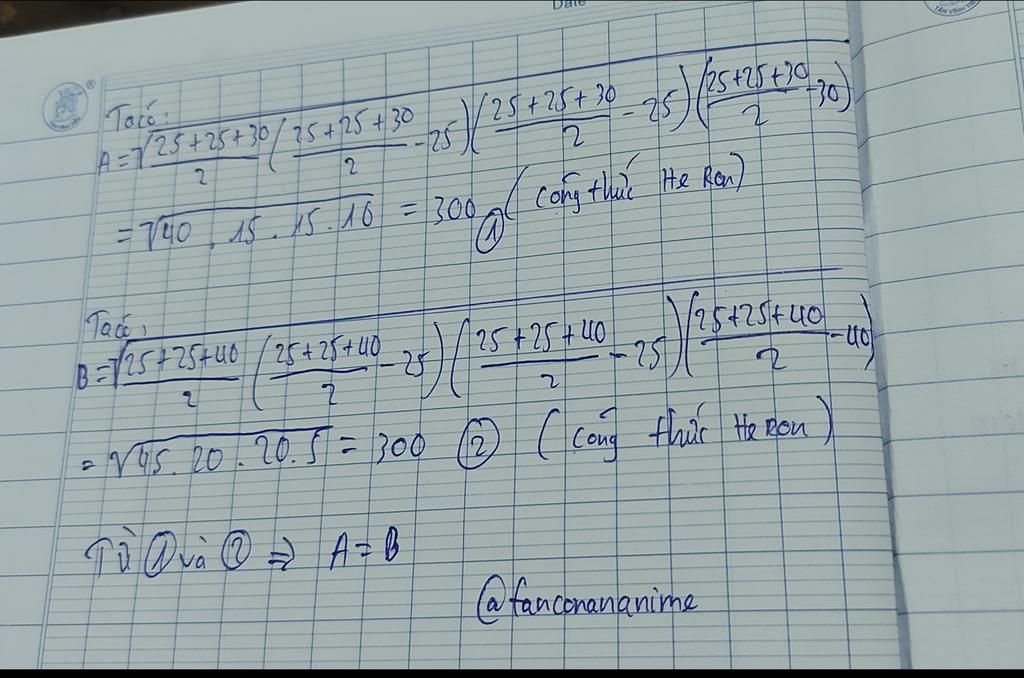 Date
Ta có:
A = √(25+25+30)/2 ((25+25+30)/2 - 25)((25+25+30)/2 - 25)((25+25+30)/2 - 30)
= √40 . 15 . 15 . 10 = 300 ① (Công thức HeRon)
Ta có:
B = √(25+25+40)/2 ((25+25+40)/2 - 25)((25+25+40)/2 - 25)((25+25+40)/2 - 40)
= √45 . 20 . 20 . 5 = 300 ② (Công thức HeRon)
Từ ① và ② ⇒ A = B
@fanconananime